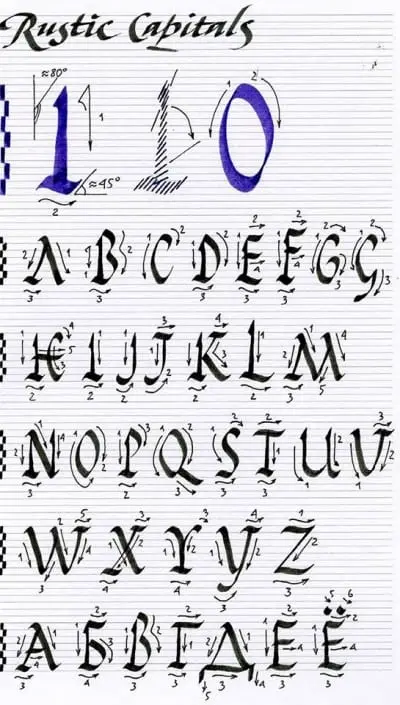 Rustic Capitals
≈80° 1 ≈45° 2 1 2
I L O
A B C D E F G G
H I J J K L M
N O P Q S T U V
W X Y Y Z
А Б В Г Д Е Ё